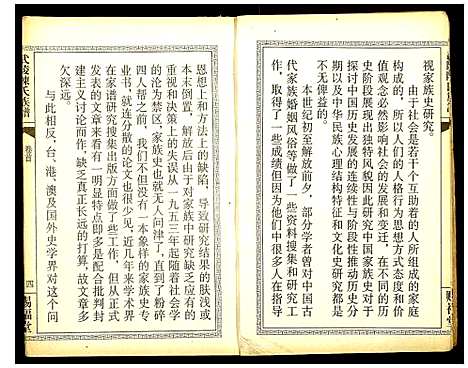 视家族史研究。
由于社会是若干个互助着的人所组成的家庭
构成的，所以人们的人格行为思想方式态度和价
值观念必然影响社会的发展和变迁，在不同的历
史阶段展示出独特风貌因此研究中国家族史对于
探讨中国历史发展的连续性与阶段性推动历史分
期以及中华民族心理结构特征和文化史研究都是
不无俾益的。
本世纪初至解放前夕，部分学者曾对中国古
代家族婚姻风俗等做了一些资料搜集和研究工
作，取得了一些成绩但因为他们中很多人在指导
恩想上和方法上的缺陷，导致研究结果的肤浅或
本末倒置，解放后由于对家族中研究缺乏应有的
重视和决策上的失误从一九五三年起随着社会学
的沦为禁区，家族史也就无人问津了，直到了粉碎
四人帮之前，我们不但没有一本象样的家族史专
业书，就连旁带的论文也很少见，近几年来学术界
在家谱研究搜集出版方面做了些工作，但从正式
发表的文章来看有一明显特点即多是配合批判封
建主义讨论而作，缺乏真正长远的打算，故文章多
欠深远。
与此相反，台、港、澳及国外史学界对这个问
武陵陈氏族谱
卷首
四
赐福堂